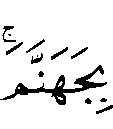 بِجَهَنَّمَۚ